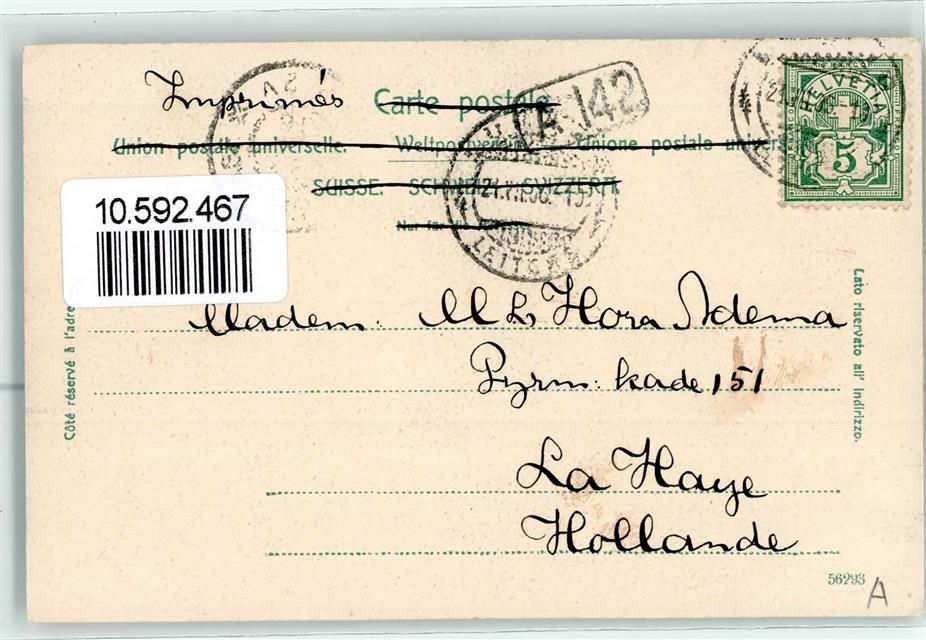 Imprimés Carte postale
A 142
Union postale universelle. Weltpostverein. Unione postale
SUISSE. SCHWEIZ. SVIZZERA.
Nur für
HELVETIA
5
10.592.467
Madem: M L Hora Adema
Pyrm: kade 151
La Haye
Hollande
Côté réservé à
Lato riservato all' indirizzo.
56293
A